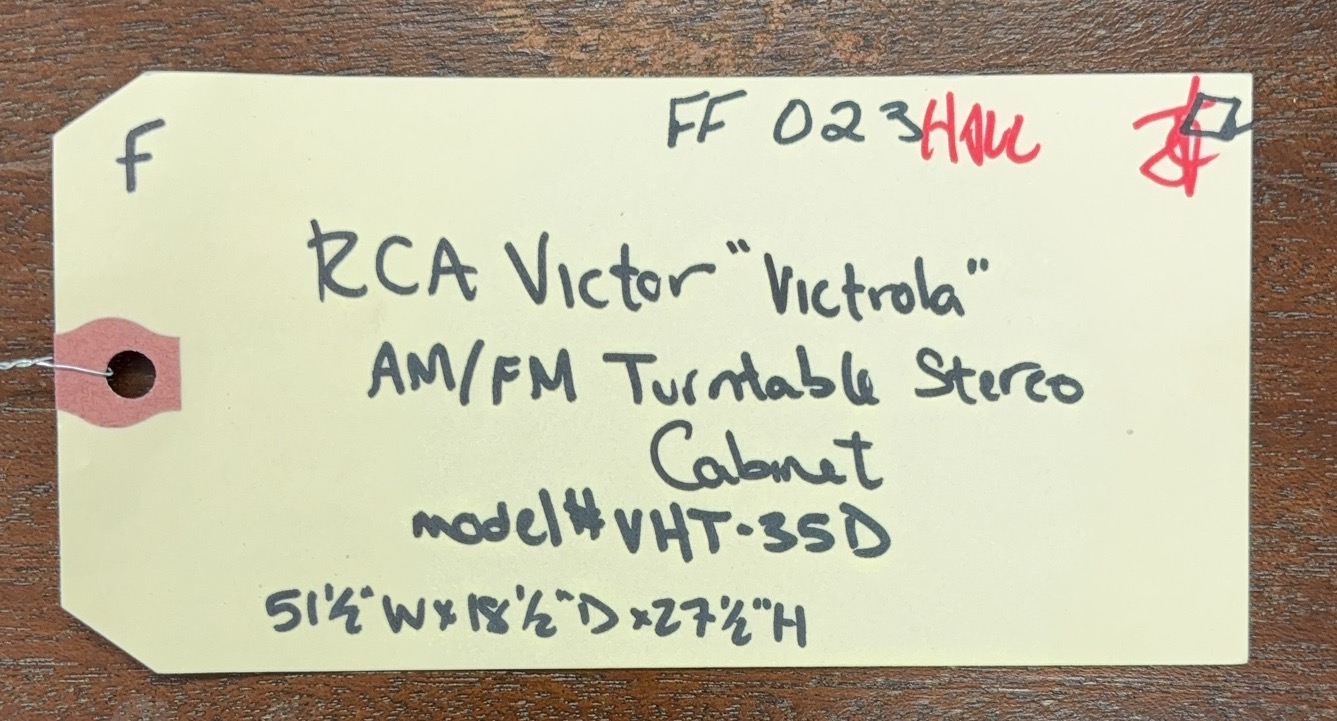 F
FF 023 HALL
RCA Victor "Victrola"
AM/FM Turntable Stereo
Cabinet
model# VHT-35D
51½" W x 18½" D x 27½" H